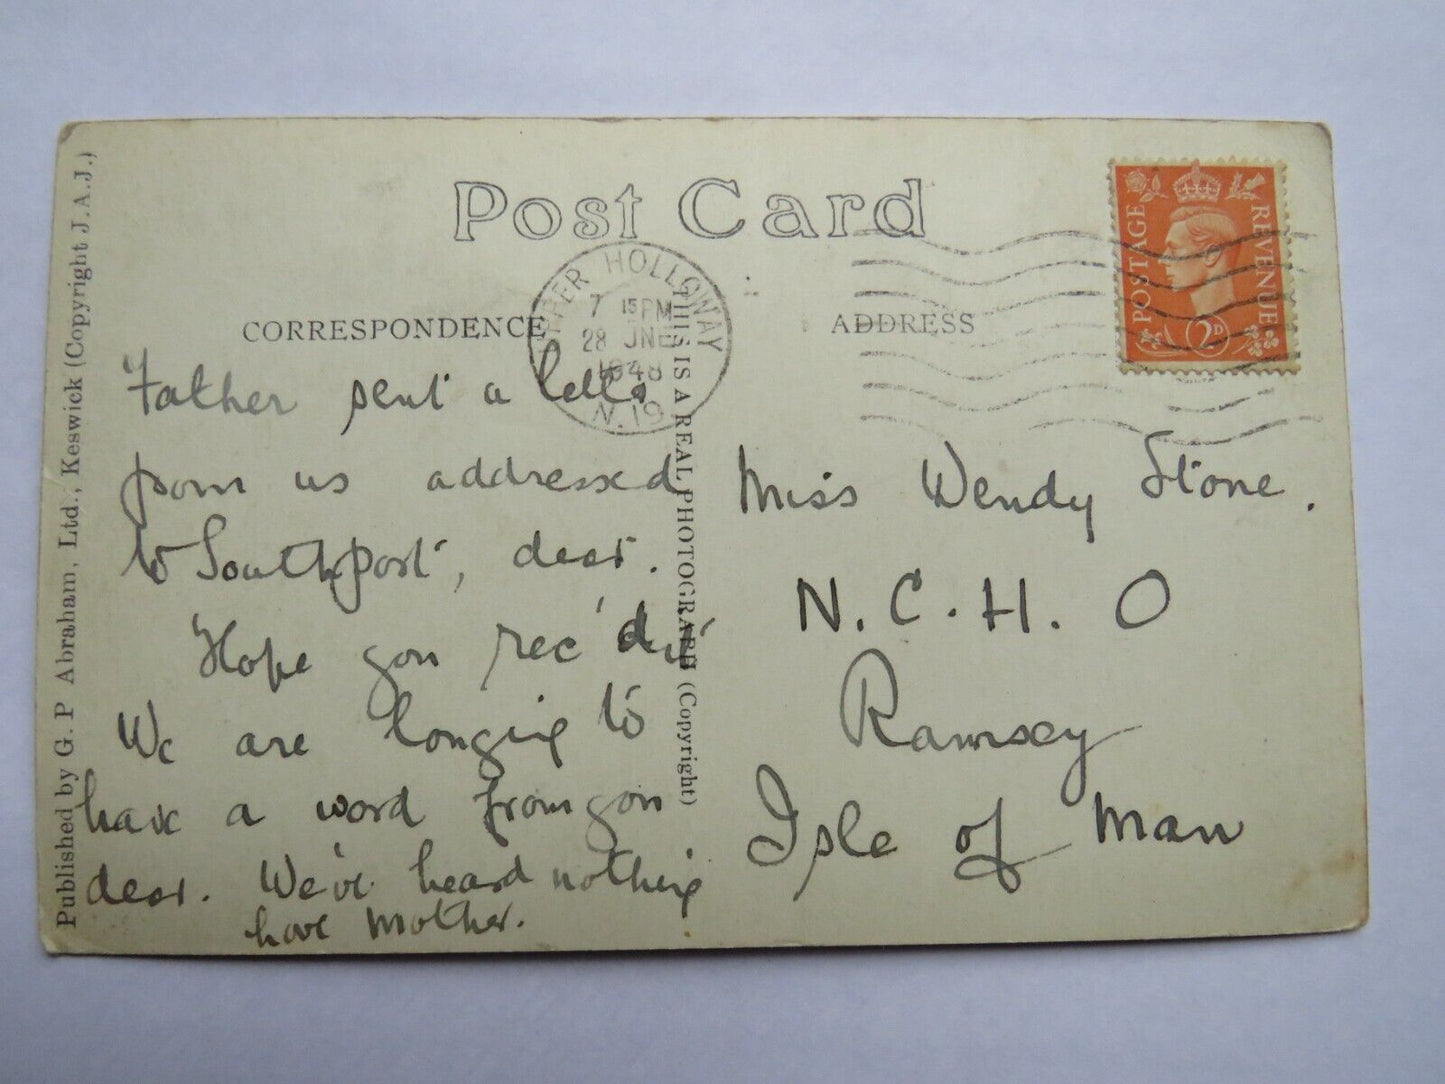 Post Card
CORRESPONDENCE
ADDRESS
UPPER HOLLOWAY
7 15 PM
28 JNE
1948
N.19
POSTAGE REVENUE
2D
Father sent a letter
from us addressed
to Southport, dear.
Hope you rec'd it
We are longing to
have a word from you
dear. We've heard nothing
love Mother.
Miss Wendy Stone.
N.C.H.O
Ramsey
Isle of Man
THIS IS A REAL PHOTOGRAPH (Copyright)
Published by G. P Abraham, Ltd., Keswick (Copyright J.A.J.)